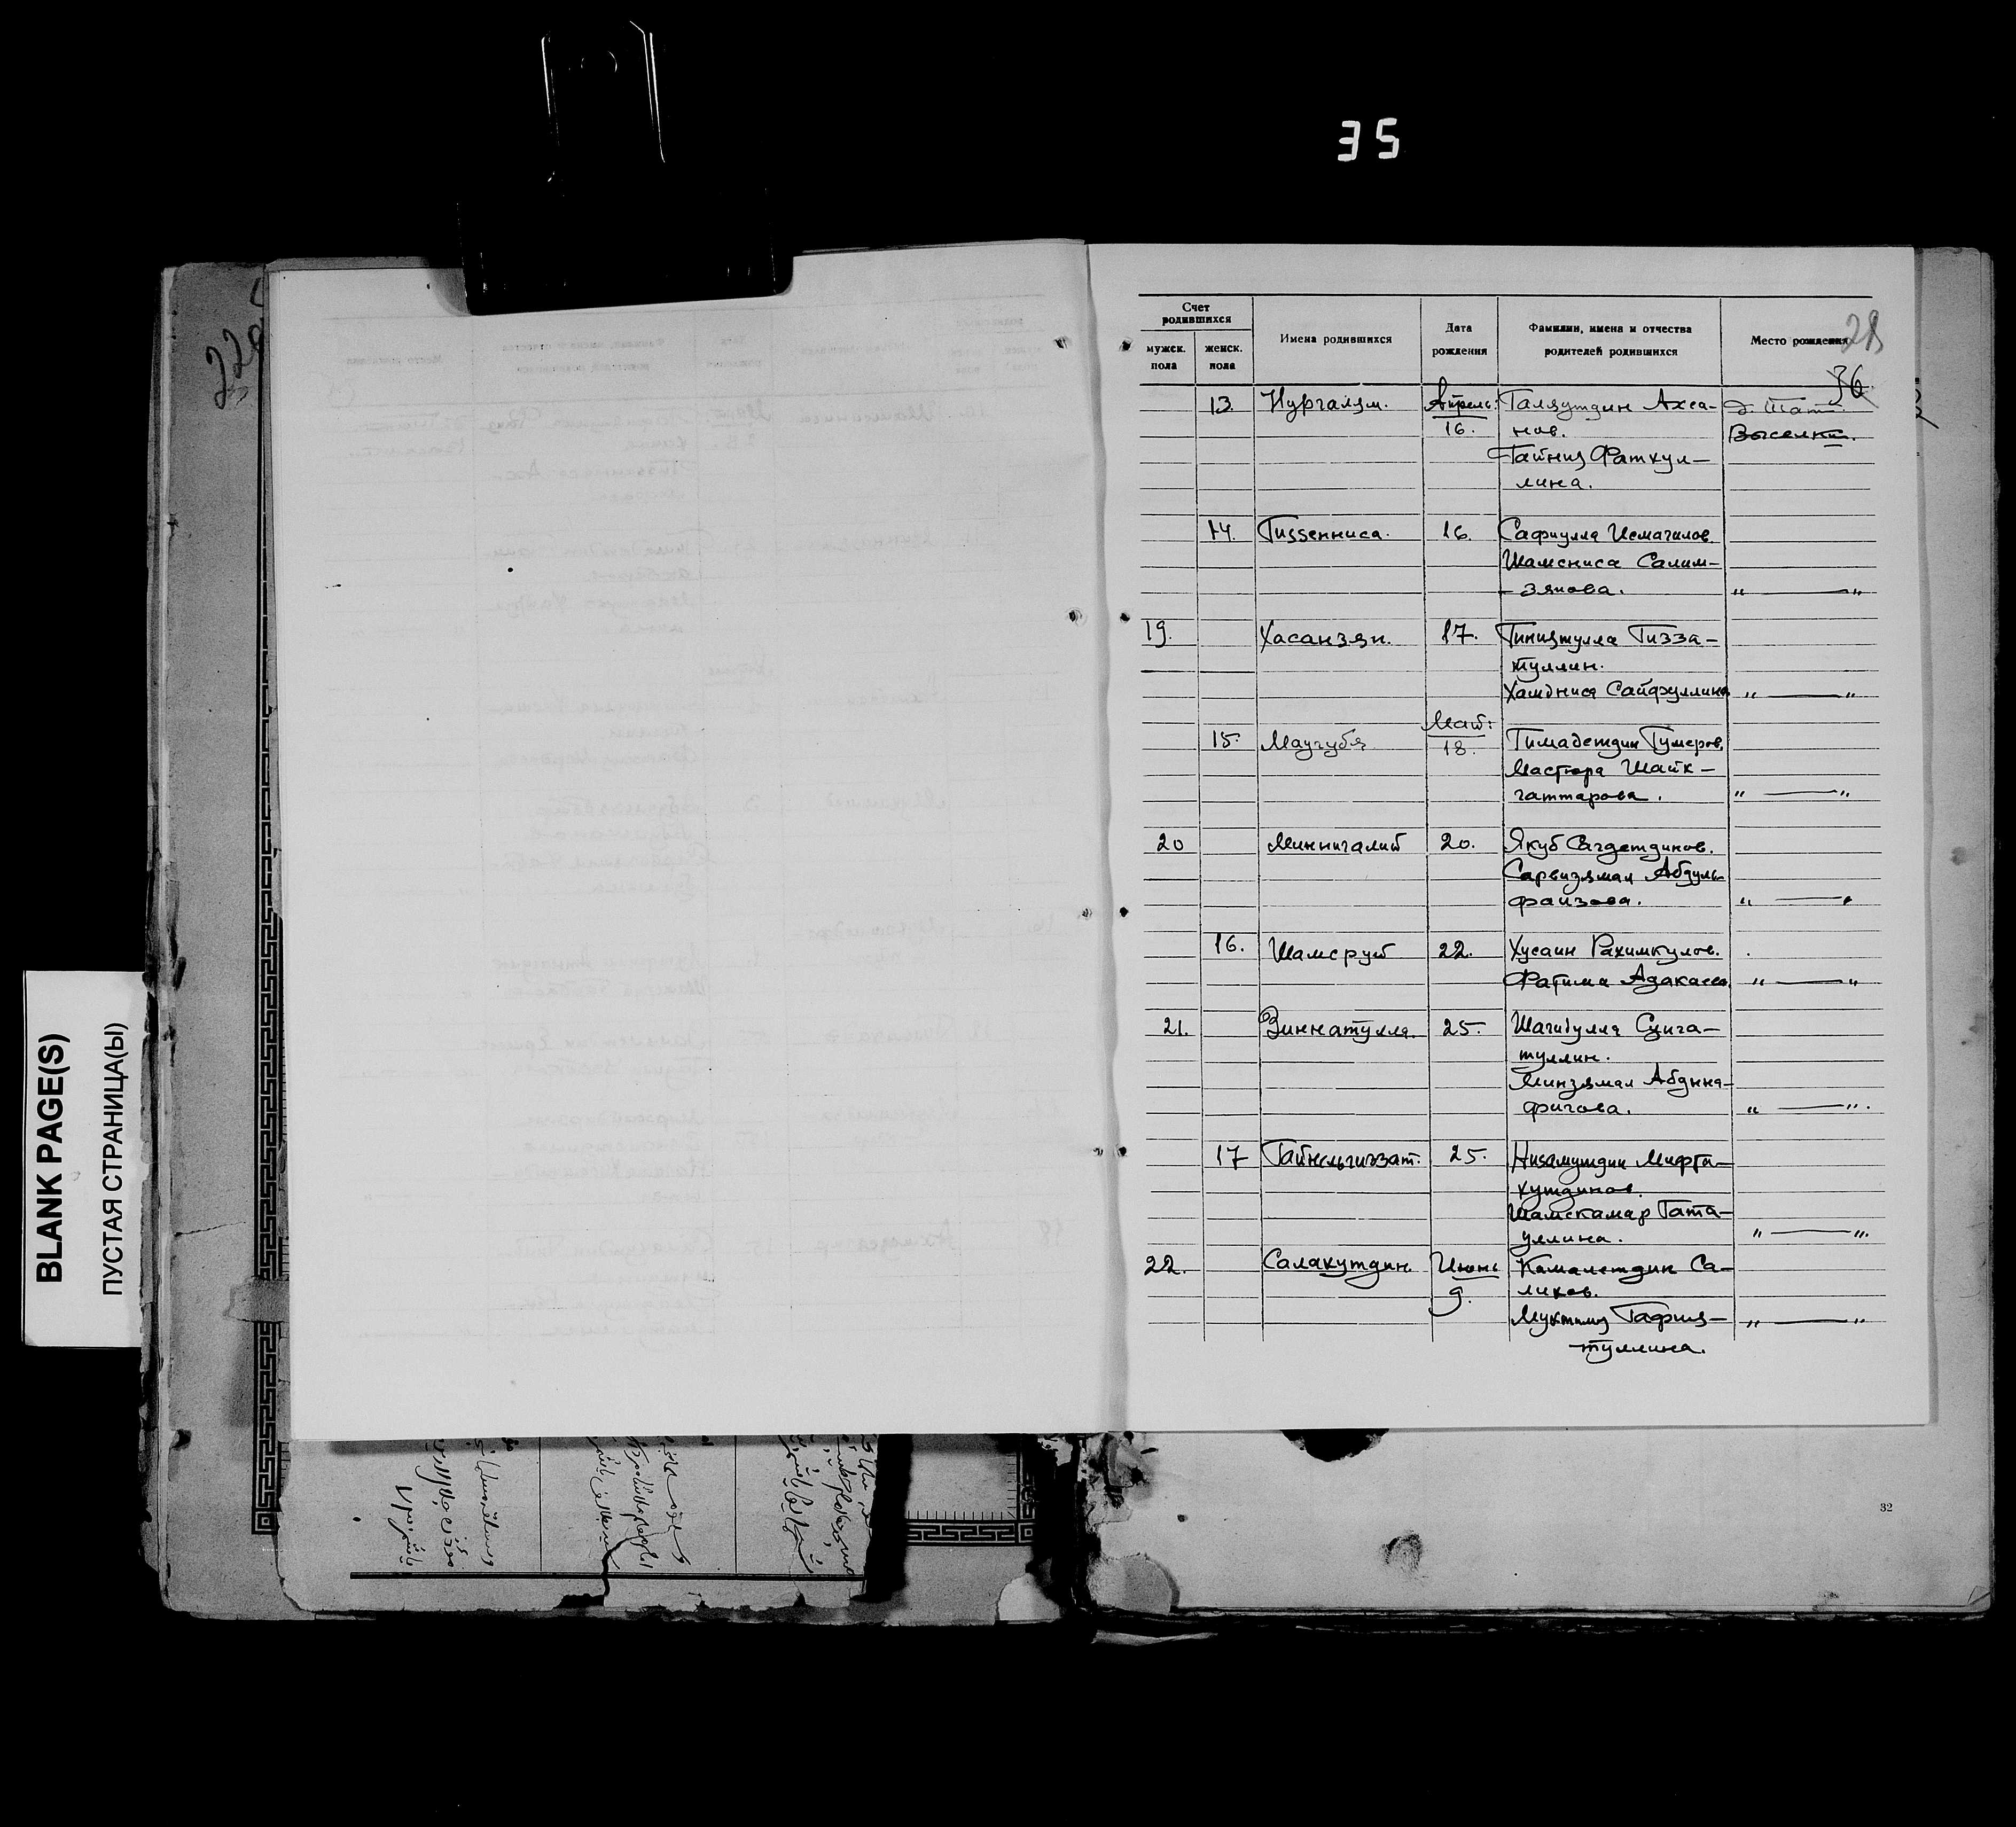 35
BLANK PAGE(S)
ПУСТАЯ СТРАНИЦА(Ы)
Счет родившихся
мужск. пола
женск. пола
Имена родившихся
Дата рождения
Фамилии, имена и отчества родителей родившихся
Место рождения
28
36
13. Нургаязм. Апрель: Галяутдин Ахса- д. Тат.
16. нов. Выселки.
Гайния Фаткул-
лина.
14. Гиззенниса. 16. Сафиулла Исмагилов.
Шамсниса Салим-
-зянова. „ — „
19. Хасанзян. 17. Гиниятулла Гизза-
туллин.
Хамдниса Сайфуллина „ — „
Май:
15. Маугубя 18. Гимадетдин Гумеров.
Мастюра Шайк-
гаттарова. „ — „
20 Миннигалий 20. Якуб Сагдетдинов.
Сарвизямал Абдуль-
фаизова. „ — „
16. Шамсруй 22. Хусаин Рахимкулов.
Фатима „ — „
21. Зиннатулла. 25. Шагидулла Сунга-
туллин.
Минзямал Абднна-
фигова. „ — „.
17 Гайнельгиззат. 25. Низамутдин Мифта-
хутдинов.
Шамскамар Гата-
уллина. „ — „.
22. Салахутдин. Июнь Камалетдин Са-
9. лихов.
Гафия- „ — „
туллина.
32